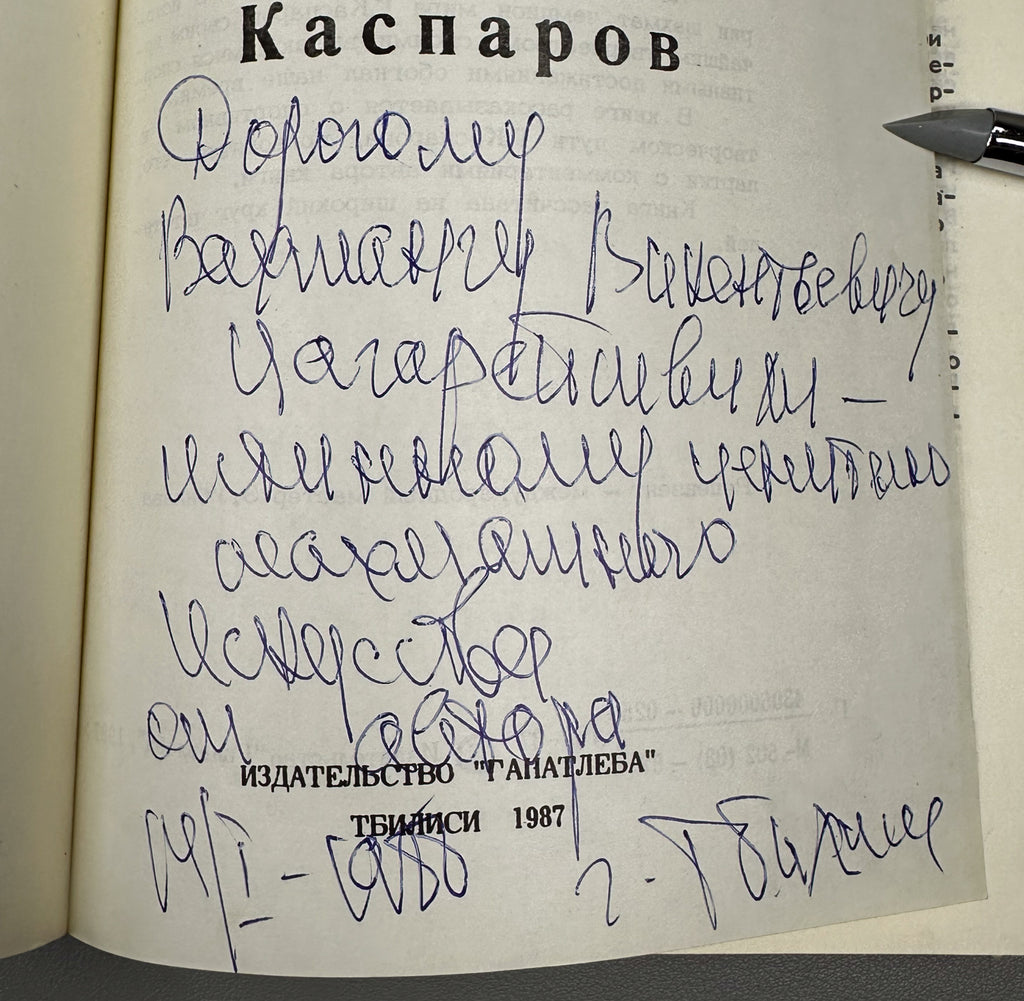 Каспаров
Дорогому
Вахтангу Викентьевичу
Цагареишвили –
истинному ценителю
шахматного
искусства
от автора
ИЗДАТЕЛЬСТВО "ГАНАТЛЕБА"
ТБИЛИСИ 1987
г. Тбилиси